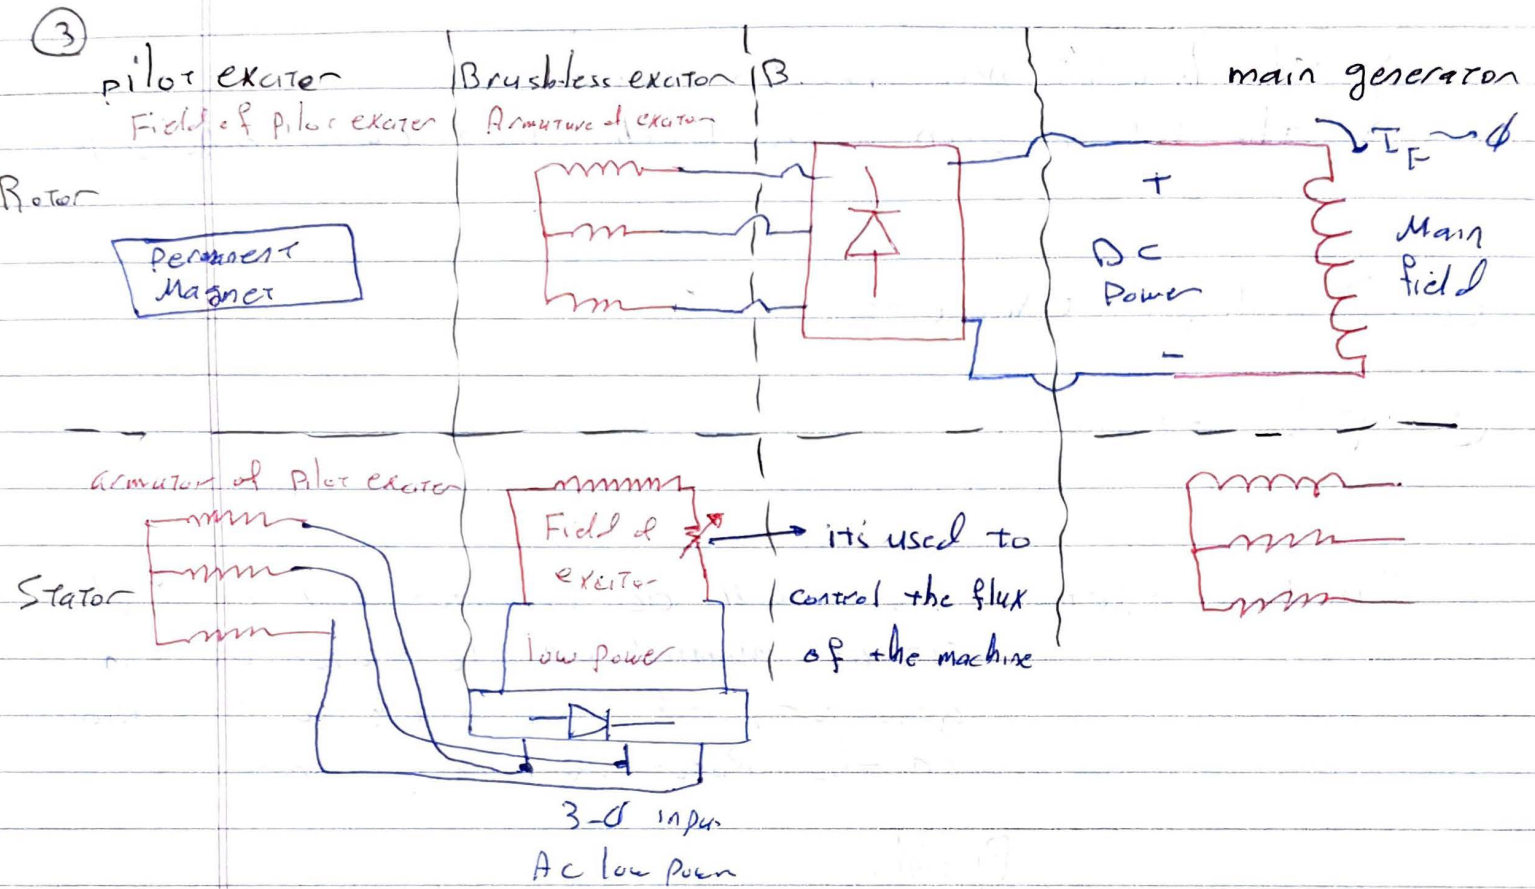 3
pilot exciter
Brushless exciter
B.
main generator
Field of pilot exciter
Armuture of exciter
I_F ~ φ
Rotor
Permanent
Magnet
+
DC
Power
-
Main
field
armutor of Pilot exciter
Field of
exciter
low power
it's used to
control the flux
of the machine
Stator
3-φ input
Ac low power